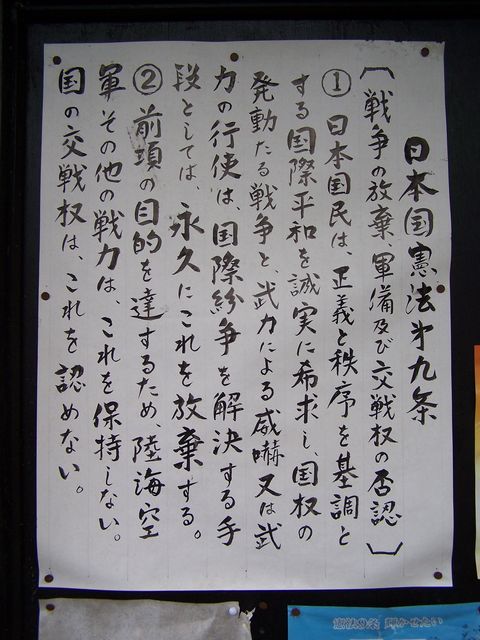 日本国憲法第九条
〔戦争の放棄、軍備及び交戦権の否認〕
① 日本国民は、正義と秩序を基調と
する国際平和を誠実に希求し、国権の
発動たる戦争と、武力による威嚇又は武
力の行使は、国際紛争を解決する手
段としては、永久にこれを放棄する。
② 前項の目的を達するため、陸海空
軍その他の戦力は、これを保持しない。
国の交戦権は、これを認めない。
憲法9条 輝かせたい